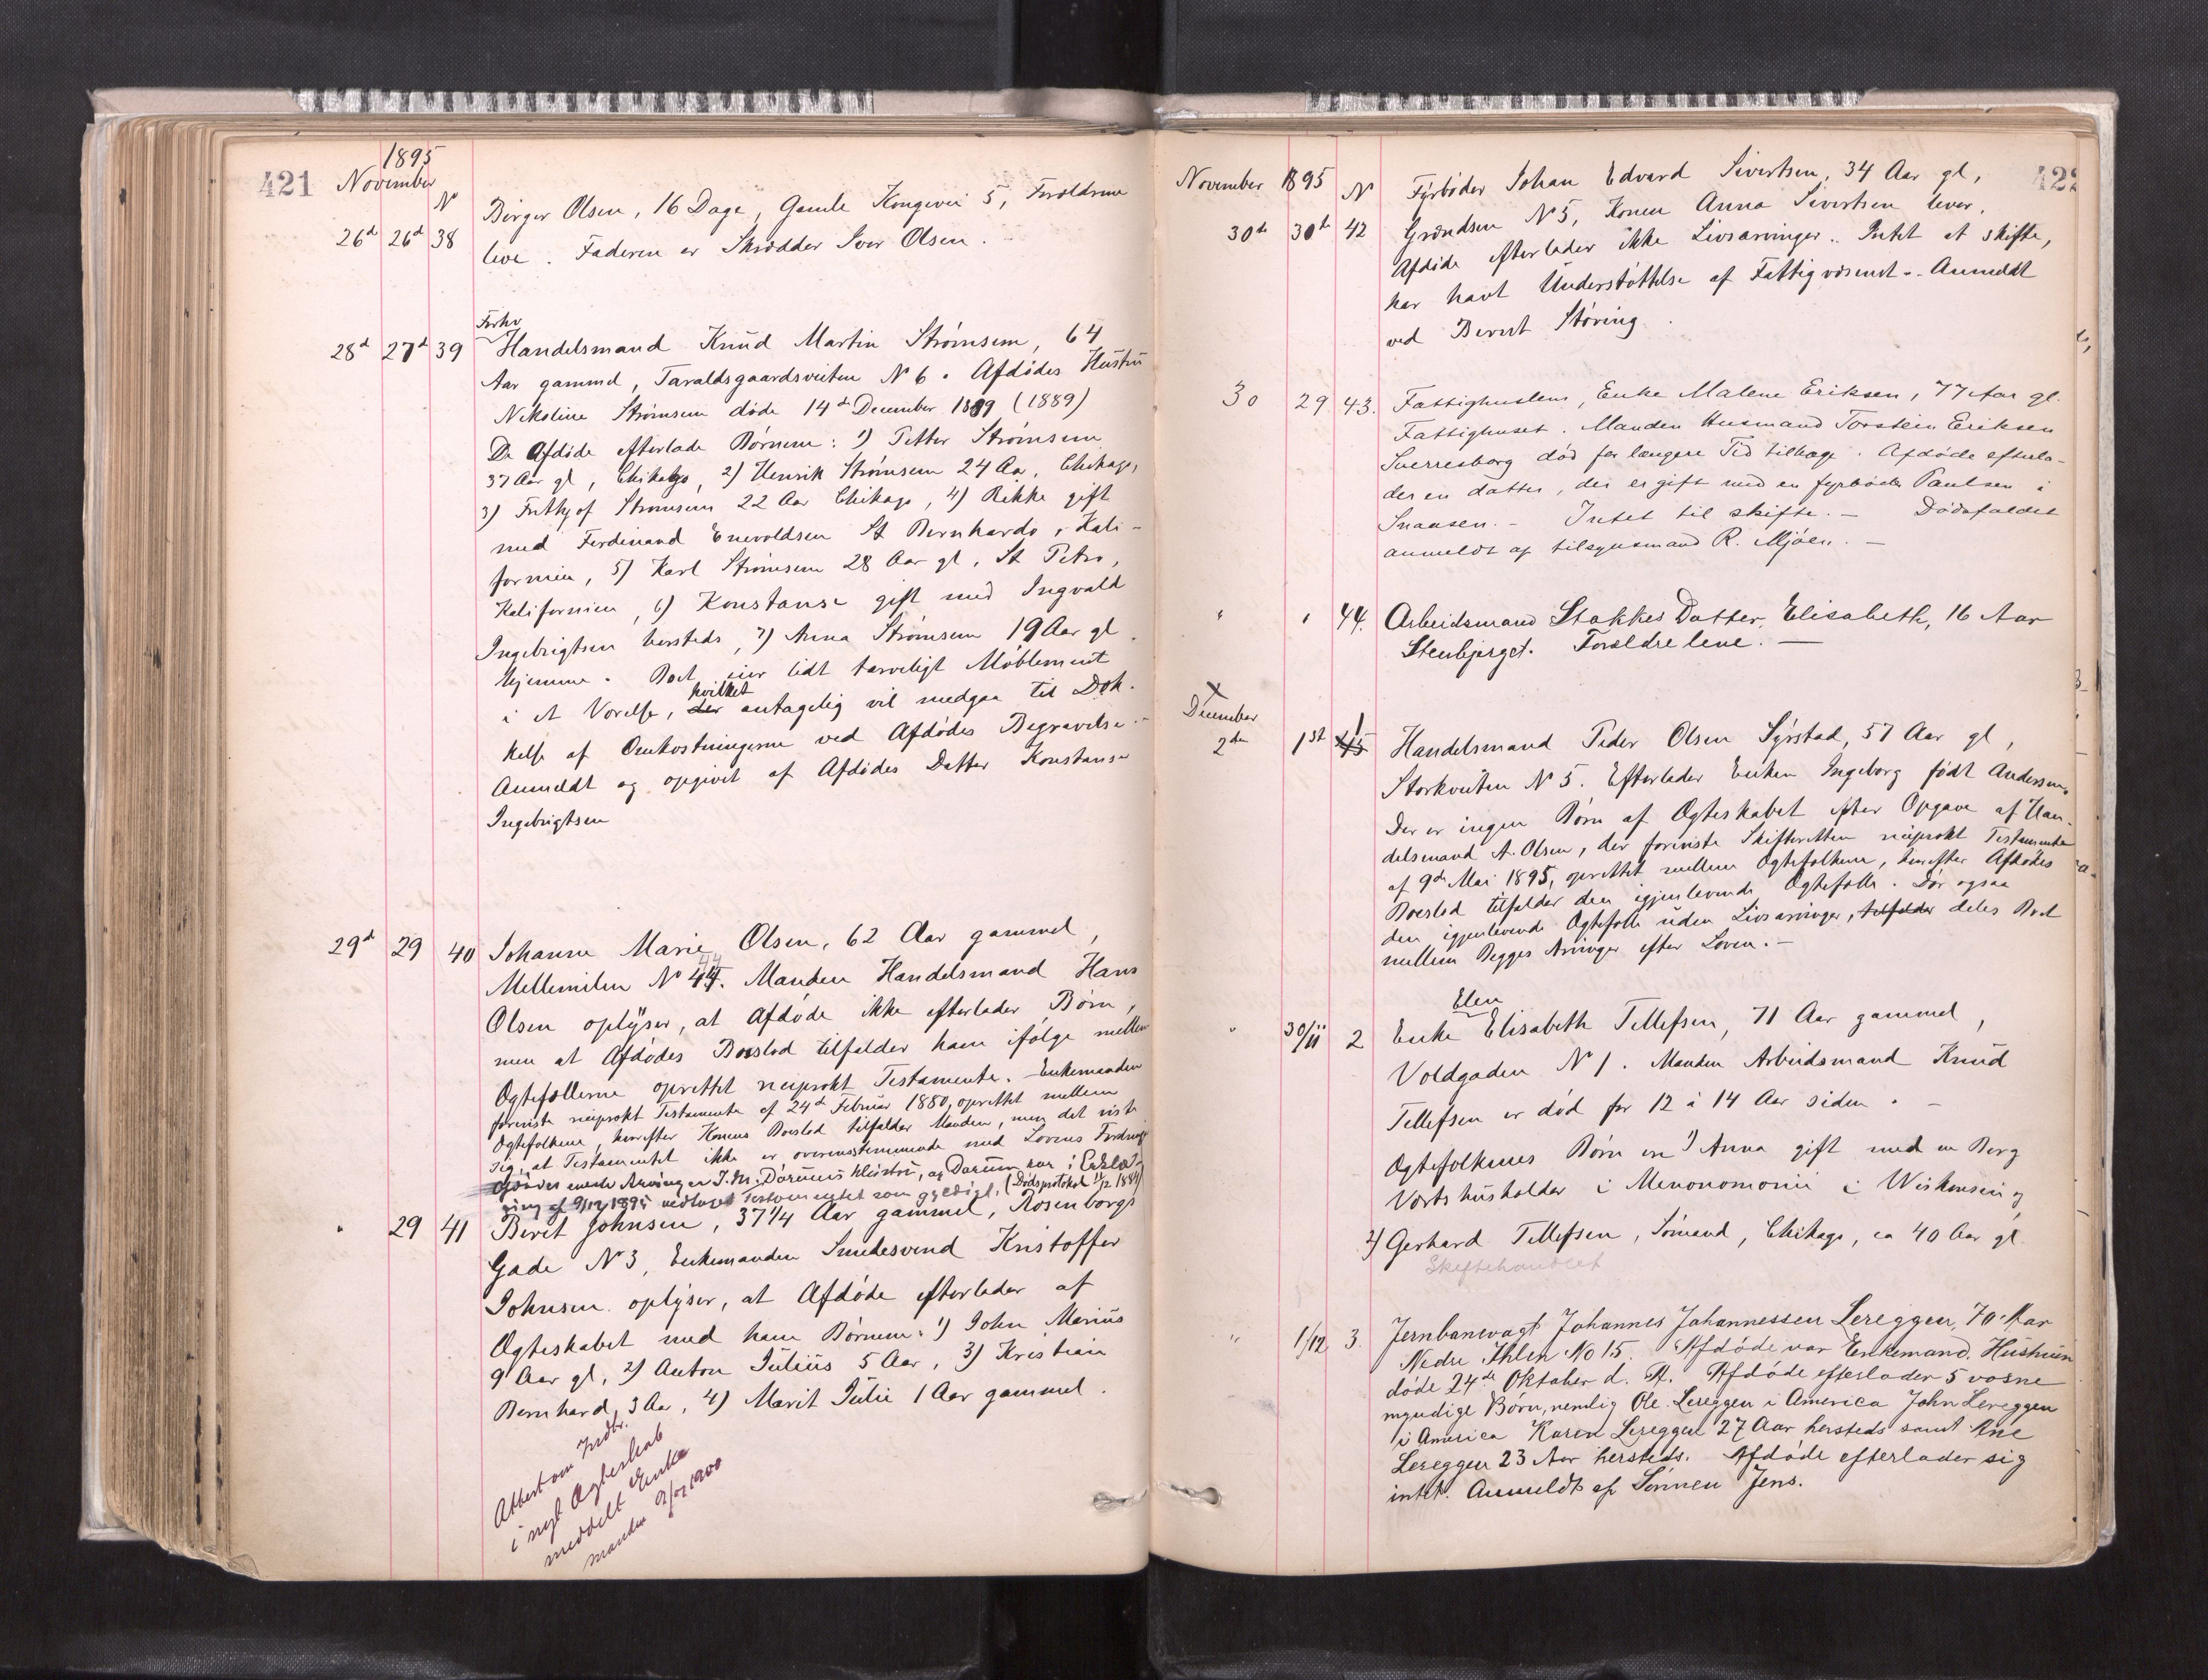 421
1895
November
N
26d 26d 38 Birger Olsen, 16 Dage, Gamle Kongevei 5, Forældrene
leve. Faderen er Skrædder Iver Olsen.
Forhv
28d 27d 39 Handelsmand Knud Martin Strømsem, 64
Aar gammel, Taraldsgaardsveiten N 6. Afdødes Hustru
Nikoline Strømsem døde 14d December 1889 (1889)
De Afdøde efterlade Børnene: 1) Petter Strømsem
37 Aar gl, Chikago, 2) Henrik Strømsem 24 Aa, Chikago,
3) Frithjof Strømsem 22 Aar Chikago, 4) Rikke gift
med Ferdinand Enevoldsen St Bernhardo, Kali-
fornien, 5) Karl Strømsem 28 Aar gl, St Petro,
Kalifornien, 6) Konstanse gift med Ingvald
Ingebrigtsen hersteds, 7) Anna Strømsem 19 Aar gl
hjemme. Boet eier lidt tarveligt Møblement
i et Værelse, der hvilket antagelig vil medgaa til Dæk-
kelse af Omkostningerne ved Afdødes Begravelse.-
Anmeldt og opgivet af Afdødes Datter Konstanse
Ingebrigtsen
29d 29 40 Johanne Marie Olsen, 62 Aar gammel,
Mellemilen N 44. Manden Handelsmand Hans
Olsen oplyser, at Afdøde ikke efterlader Børn,
men at Afdødes Boeslod tilfalder ham ifølge mellem
Ægtefællerne oprettet reciprokt Testamente. Enkemanden
foreviste reciprokt Testamente af 24d Februar 1880, oprettet mellem
Ægtefolkene, hvorefter Konens Boeslod tilfalder Manden, men det viste
sig, at Testamentet ikke er overensstemmende med Lovens Fordringer
Arvinger J. M. Dørums Hustru, og Dørum har i Erklæ-
ring af 9/12 1895 vedtaget Testamentet som gyldigt, (Dødsprotokol
" 29 41 Berit Johnsen, 37 1/4 Aar gammel, Rosenborgs
Gade N 3, Enkemanden Smedesvend Kristoffer
Johnsen oplyser, at Afdøde efterlader af
Ægteskabet med ham Børnene: 1) John Marius
9 Aar gl, 2) Anton Julius 5 Aar, 3) Kristian
Bernhard 3 Aa, 4) Marit Julie 1 Aar gammel.
Attest om Indtr.
i nyt Ægteskab
meddelt Enke
manden 1900
422
November 1895 N
30te 30te 42 Fyrbøder Johan Edvard Sivertsen, 34 Aar gl,
Grændsen N 5, Konen Anna Sivertsen lever.
Afdøde efterlader ikke Livsarvinger. Intet at skifte,
har havt Understøttelse af Fattigvæsenet. Anmeldt
ved Berent Støring.
30 29 43. Fattighuslem, Enke Malene Eriksen, 77 Aar gl.
Fattighuset. Manden Husmand Torstein Eriksen
Sverresborg død for længere Tid tilbage. Afdøde efterla-
der en datter, der er gift med en fyrbøder Paulsen i
Snaasen. - Intet til skifte. - Dødsfaldet
anmeldt af tilsynsmand R. Mjøen. -
" " 44. Arbeidsmand Stokkes Datter, Elisabeth, 16 Aar
Stenbjerget. Forældre leve. -
X
December
2den 1ste 45 1 Handelsmand Peder Olsen Syrstad, 57 Aar gl,
Storkveiten N 5. Efterlader Enken Ingeborg født Andersen.
Der er ingen Børn af Ægteskabet efter Opgave af Han-
delsmand A. Olsen, der foreviste Skifteretten reciprokt Testamente
af 9de Mai 1895, oprettet mellem Ægtefolkene, hvorefter Afdødes
Boeslod tilfalder den igjenlevende Ægtefælle. Dør ogsaa
den igjenlevende Ægtefælle uden Livsarvinger, tilfalder deles Boet
mellem Begges Arvinger efter Loven. -
Elen
" 30/11 2 Enke Elisabeth Tellefsen, 71 Aar gammel,
Voldgaden N 1. Manden Arbeidsmand Knud
Tellefsen er død for 12 à 14 Aar siden. -
Ægtefolkenes Børn ere 1) Anna gift med en Berg
Vertshusholder i Menonomonie i Wiskonsin og
2) Gerhard Tellefsen, Sømand, Chikago, ca 40 Aar gl.
Skiftebehandlet
" 1/12 3. Jernbanevagt Johannes Johannessen Lereggen, 70 Aar
Nedre Ihlen No 15. Afdøde var Enkemand. Hustruen
døde 24de Oktober d. A. Afdøde efterlader 5 voxne
myndige Børn, nemlig Ole Lereggen i America John Lereggen
i America Karen Lereggen 27 Aar hersteds samt Ane
Lereggen 23 Aar hersteds. Afdøde efterlader sig
intet. Anmeldt af Sønnen Jens.